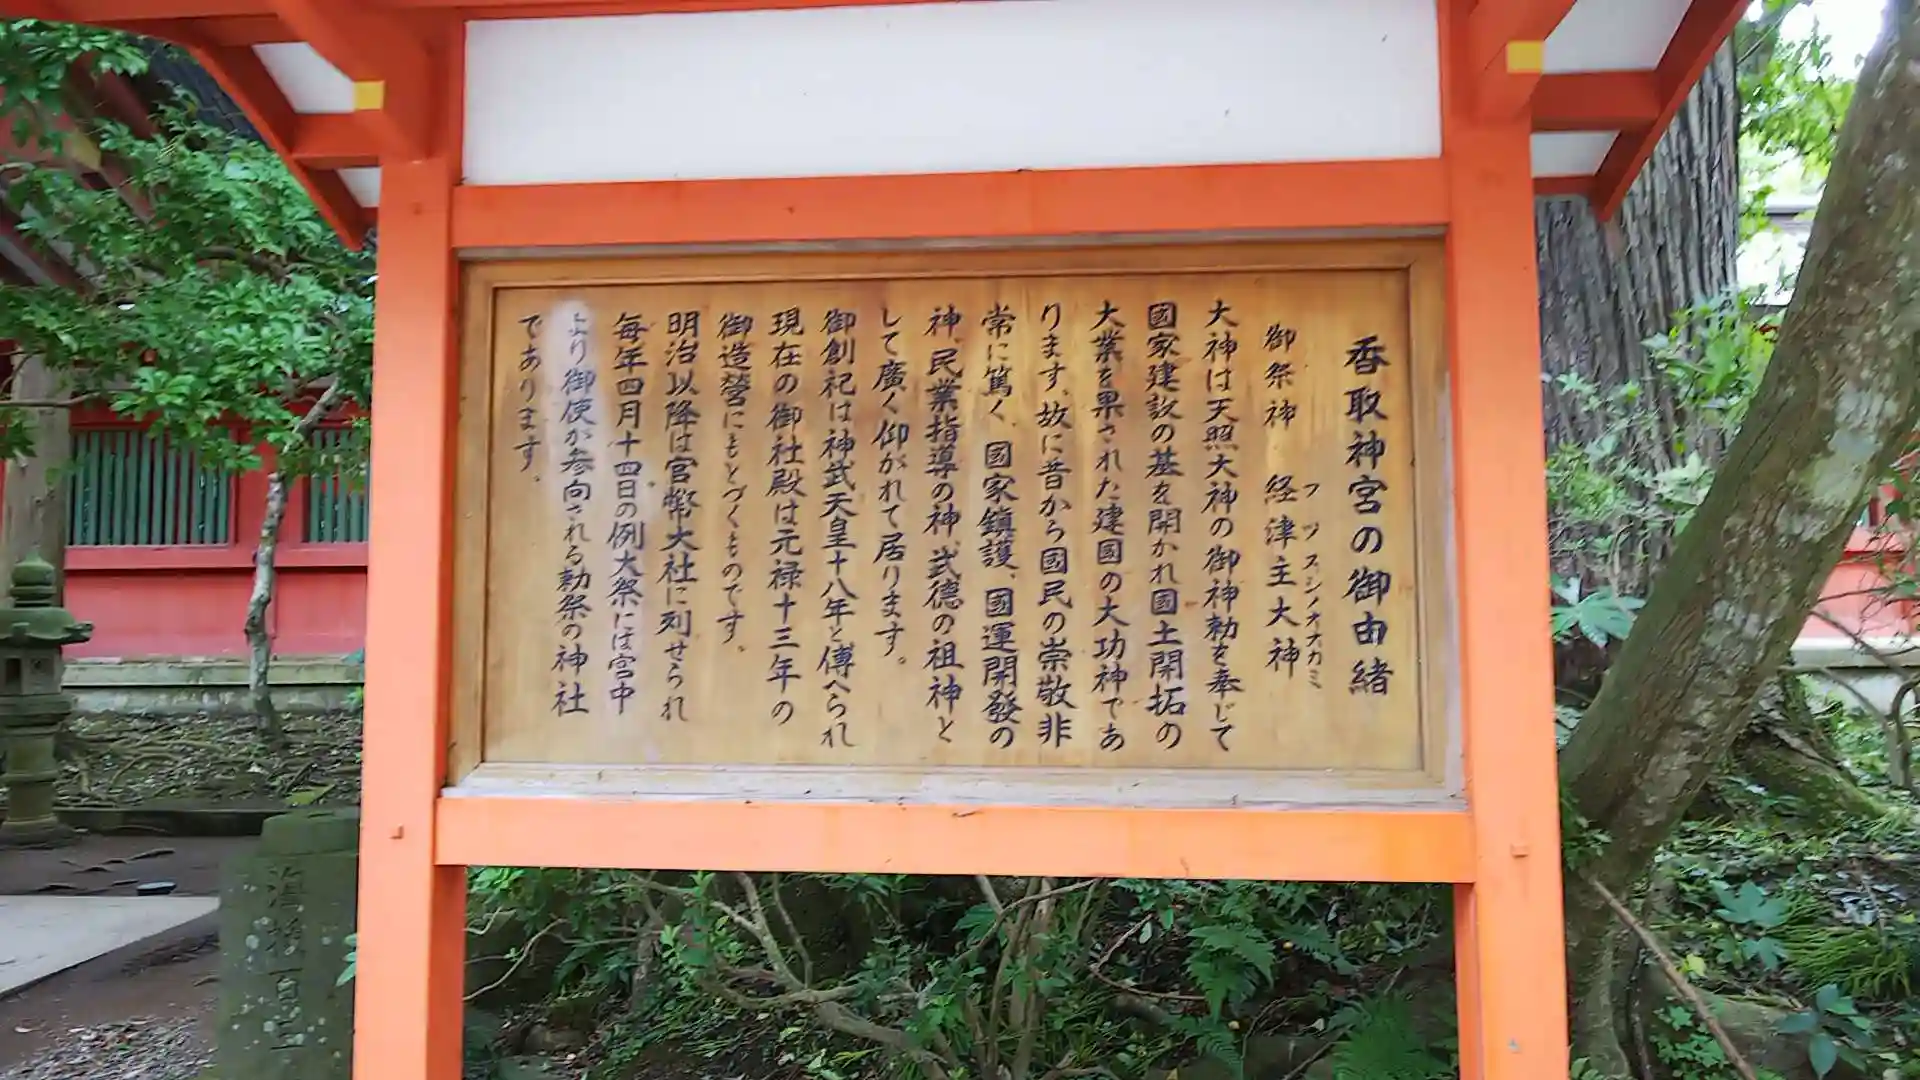 香取神宮の御由緒
御祭神 経津主大神
フツヌシノオオカミ
大神は天照大神の御神勅を奉じて
國家建設の基を開かれ國土開拓の
大業を果された建國の大功神であ
ります、故に昔から國民の崇敬非
常に篤く、國家鎮護、國運開發の
神、民業指導の神、武徳の祖神と
して廣く仰がれて居ります。
御創祀は神武天皇十八年と傳へられ
現在の御社殿は元禄十三年の
御造營にもとづくものです。
明治以降は官幣大社に列せられ
毎年四月十四日の例大祭には宮中
より御使が参向される勅祭の神社
であります。